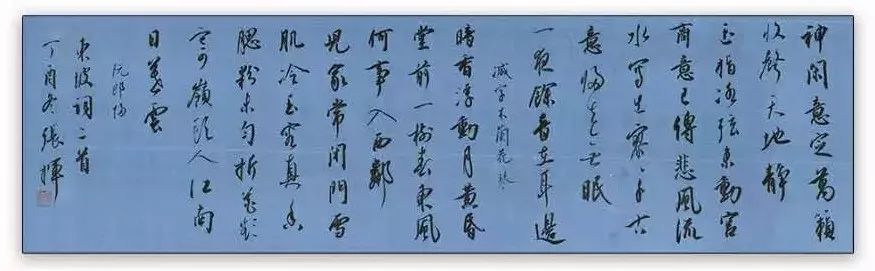 神閑意定萬籟
收聲天地靜
玉指冰弦未動宮
商意已傳悲風流
水寫出寥寥千古
意歸去無眠
一夜餘音在耳邊
減字木蘭花琴
暗香浮動月黃昏
堂前一樹春東風
何事入西鄰
兒家常閉門雪
肌冷玉容真香
腮粉未勻折花欲
寄嶺頭人江南
日暮雲
阮郎歸
東坡詞二首
丁酉冬張輝